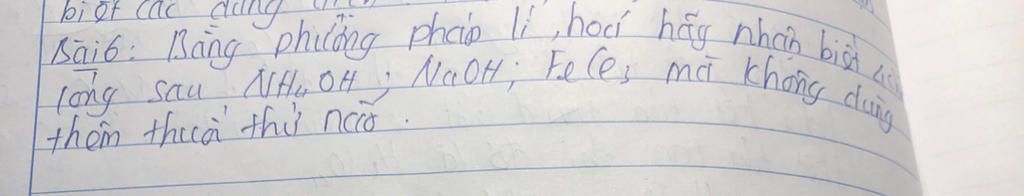 biết các dung
Bài 6: Bằng phương pháp lí, hoá hãy nhận biết các
lỏng sau NH₄OH; NaOH; FeCl₃ mà không dùng
thêm thuốc thử nào.